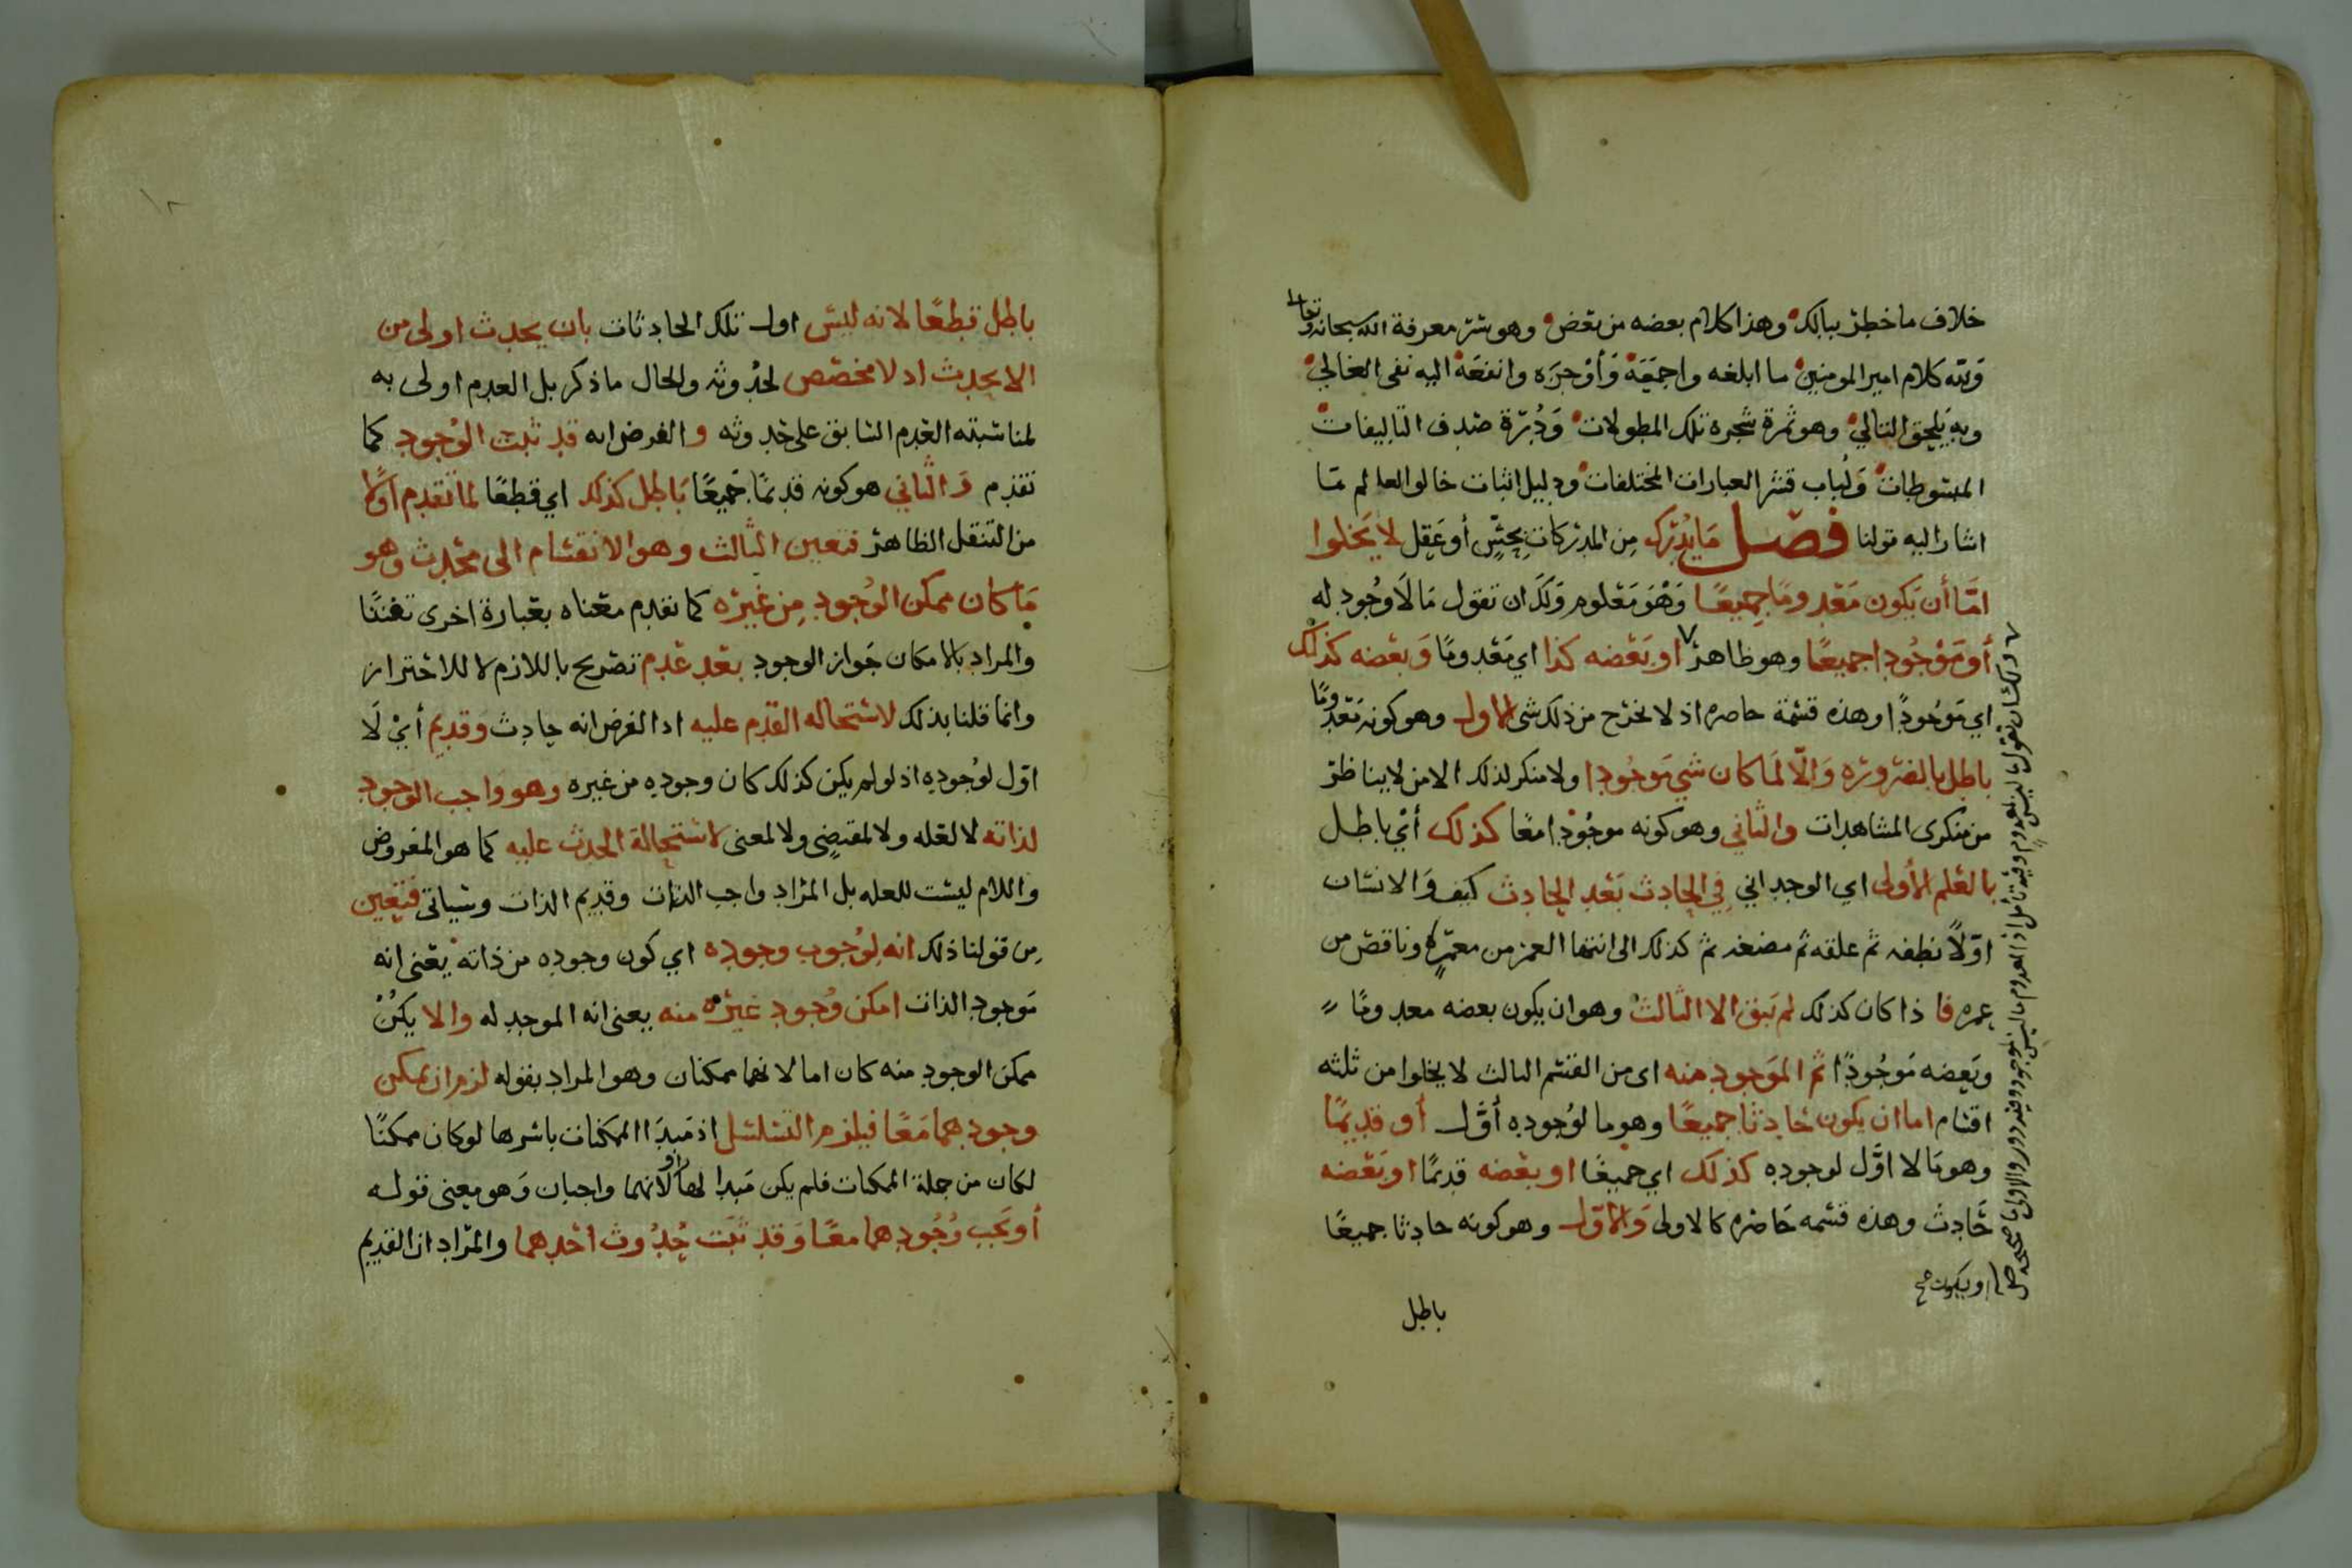 خلاف ما خطر ببالك وهذا كلام بعضه من بعض وهو سر معرفة الله سبحانه وتعالى
ولله كلام امير المومنين ما ابلغه واجمعه وأوجزه وانفعه اليه نفى الغالي
وبه يلحق التالي وهو ثمرة شجره تلك المطولات ودرة صدف التاليفات
المبسوطات ولباب قشر العبارات المختلفات ودليل اثبات خالق العالم ما
اشار اليه قولنا فصل ما يدرك من المدركات بحسٍّ أو عقل لا يخلوا
امّا أن يكون معدومًا جميعًا وهو معلوم ولك ان تقول ما لا وجود له
أو موجودا جميعًا وهو ظاهر او بعضه كذا اي معدومًا وبعضه كذلك
اي موجودًا وهذه قسمة حاصره اذ لا يخرج من ذلك شى الاول وهو كونه معدومًا
باطل بالضروره والّا لما كان شي موجودا ولا منكر لذلك الا من لا يناظر
من منكرى المشاهدات والثاني وهو كونه موجودا معًا كذلك أي باطل
بالعلم الأولى اي الوجداني في الحادث بعد الحادث كيف والانسان
اوّلاً نطفه ثم علقه ثم مضغه ثم كذلك الى انتها العمر من معمّرٍ وناقص من
عمره فا ذا كان كذلك لم يبق الا الثالث وهو ان يكون بعضه معدومًا
وبعضه موجودًا ثم الموجود منه اى من القسم الثالث لا يخلوا من ثلثه
اقسام اما ان يكون حادثا جميعًا وهو ما لوجوده أوّل أو قديمًا
وهو ما لا اوّل لوجوده كذلك اي جميعًا او بعضه قديمًا او بعضه
حادث وهذه قسمه حاصره كالاولى والاوّل وهو كونه حادثا جميعًا
او يكون صح
باطل
ولك ان تقول ما ليس بمعدوم وفيه تامل اذ المعدوم ما ليس بموجود وفيه دور والاولى ما
باطل قطعًا لانه ليس اول تلك الحادثات بان يحدث اولى من
الا يحدث اد لا مخصّص لحدوثه والحال ما ذكر بل العدم اولى به
لمناسبته العدم السابق على حدوثه و الفرض انه قد ثبت الوجود كما
تقدم و الثاني هو كونه قديمًا جميعًا باطل كذلك اي قطعًا لما تقدم اولًا
من التنقل الظاهر فتعين الثالث وهو الانقسام الى محدث وهو
ما كان ممكن الوجود من غيره كما تقدم معناه بعبارة اخرى تفننًا
والمراد بالامكان جواز الوجود بعد عدم تصريح باللازم لا للاحتراز
وانما قلنا بذلك لاستحاله القدم عليه اد الفرض انه حادث وقديم أي لا
اوّل لوجوده اذ لو لم يكن كذلك كان وجوده من غيره وهو واجب الوجود
لذاته لا لعله ولا لمقتضٍى ولا لمعنى لاستحالة الحدث عليه كما هو المفروض
واللام ليست للعله بل المراد واجب الذات وقديم الذات وسياتى فتعين
من قولنا ذلك انه لوجوب وجوده اي كون وجوده من ذاته يعنى انه
موجود الذات امكن وجود غيره منه بمعنى انه الموجد له والا يكن
ممكن الوجود منه كان اما لانهما ممكنان وهو المراد بقوله لزم ان يمكن
وجودهما معًا فيلزم التسلسل اذ مبدا الممكنات باسرها لو كان ممكنًا
لكان من جملة الممكنات فلم يكن مبدا لها او لانهما واجبان وهو معنى قوله
أو يجب وجودهما معًا وقد ثبت حدوث احدهما والمراد ان القديم